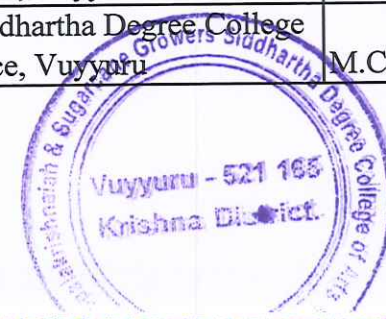 dhartha Degree College
ce, Vuyyuru
M.C
palakrishnaiah & Sugarcane Growers Siddhartha Degree College of Arts
Vuyyuru - 521 165
Krishna District.